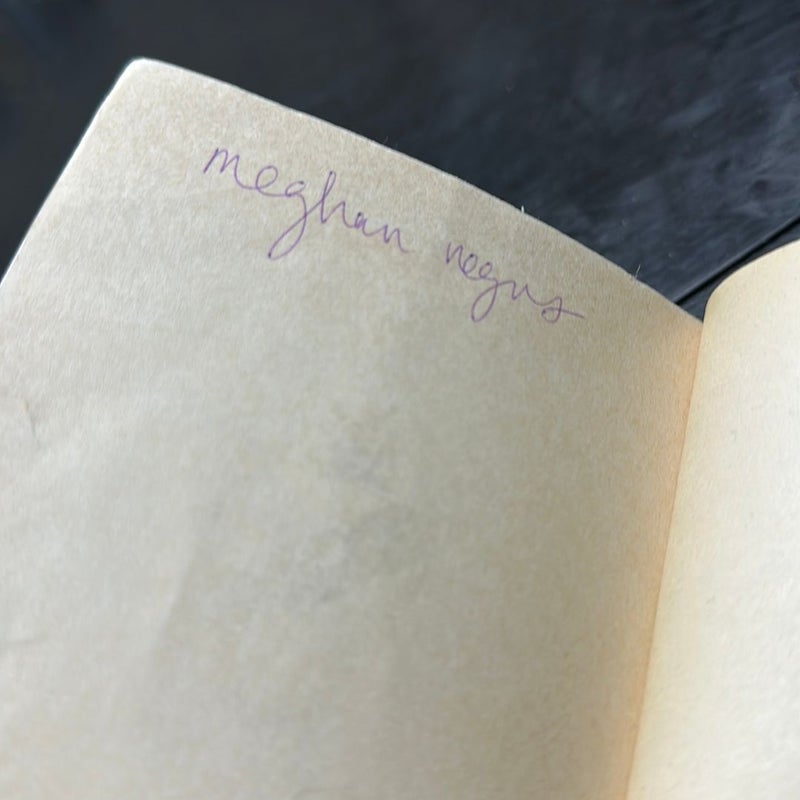 meghan negus